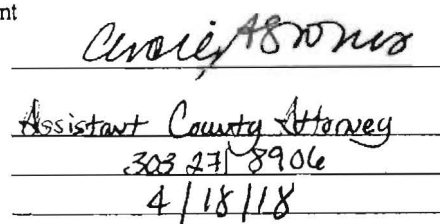 nt
Assistant County Attorney
303 271 8906
4/18/18